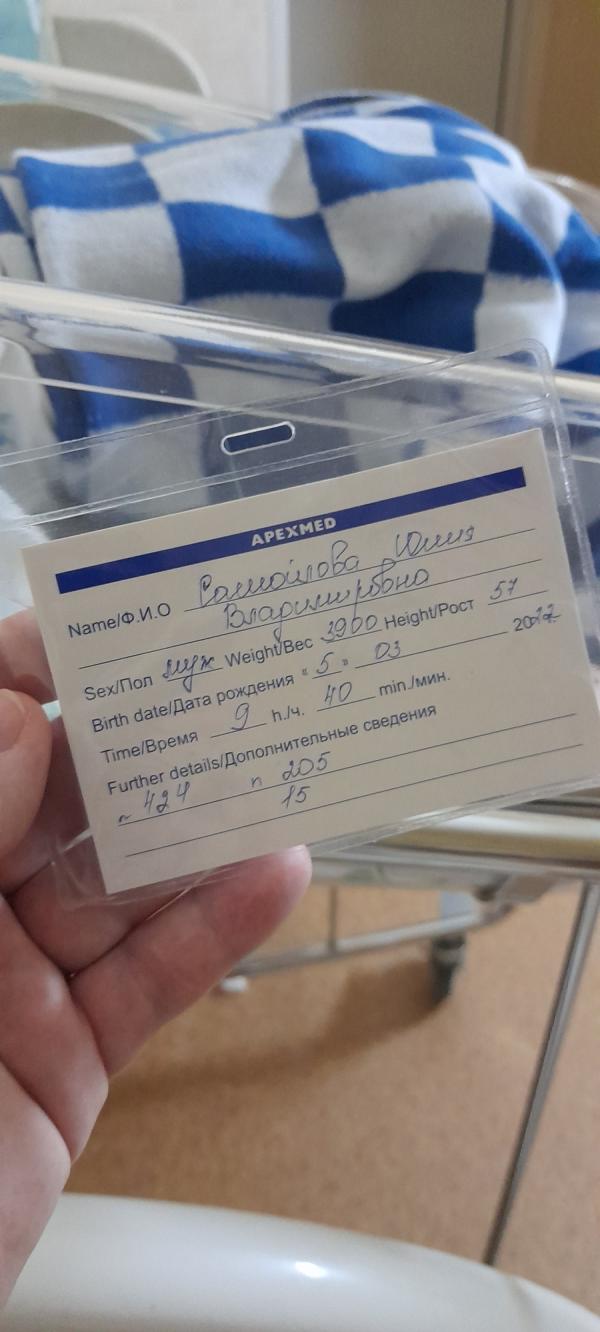 APEXMED
Name/Ф.И.О Самойлова Юлия
Владимировна
Sex/Пол муж Weight/Вес 3900 Height/Рост 57
Birth date/Дата рождения « 5 » 03 20
Time/Время 9 h./ч. 40 min./мин.
Further details/Дополнительные сведения
~ 424 п 205
15